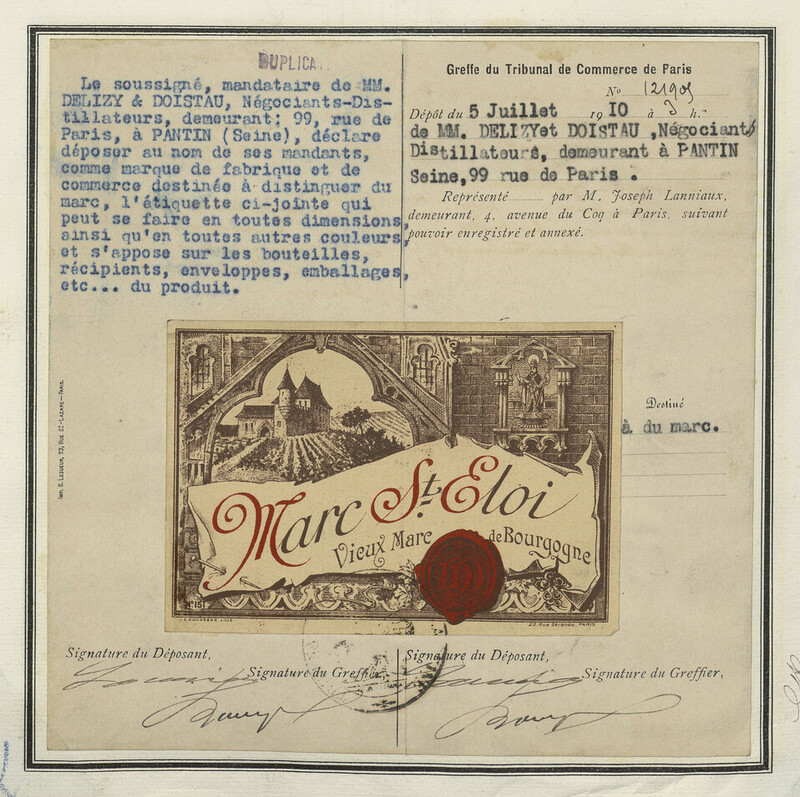 DUPLICA
Le soussigné, mandataire de MM.
DELIZY & DOISTAU, Négociants-Dis-
tillateurs, demeurant: 99, rue de
Paris, à PANTIN (Seine), déclare
déposer au nom de ses mandants,
comme marque de fabrique et de
commerce destinée à distinguer du
marc, l'étiquette ci-jointe qui
peut se faire en toutes dimensions,
ainsi qu'en toutes autres couleurs,
et s'appose sur les bouteilles,
récipients, enveloppes, emballages,
etc... du produit.
Greffe du Tribunal de Commerce de Paris
No 121905
Dépôt du 5 Juillet 1910 à 3 h.
de MM. DELIZY et DOISTAU ,Négociants
Distillateurs, demeurant à PANTIN
Seine,99 rue de Paris .
Représenté par M. Joseph Lanniaux,
demeurant, 4, avenue du Coq à Paris, suivant
pouvoir enregistré et annexé.
Imp. S. Lesueur, 73, Rue St-Lazare—Paris.
Destiné
à du marc.
Marc St. Eloi
Vieux Marc de Bourgogne
No 151
Signature du Déposant,
Signature du Greffier,
Signature du Déposant,
Signature du Greffier,